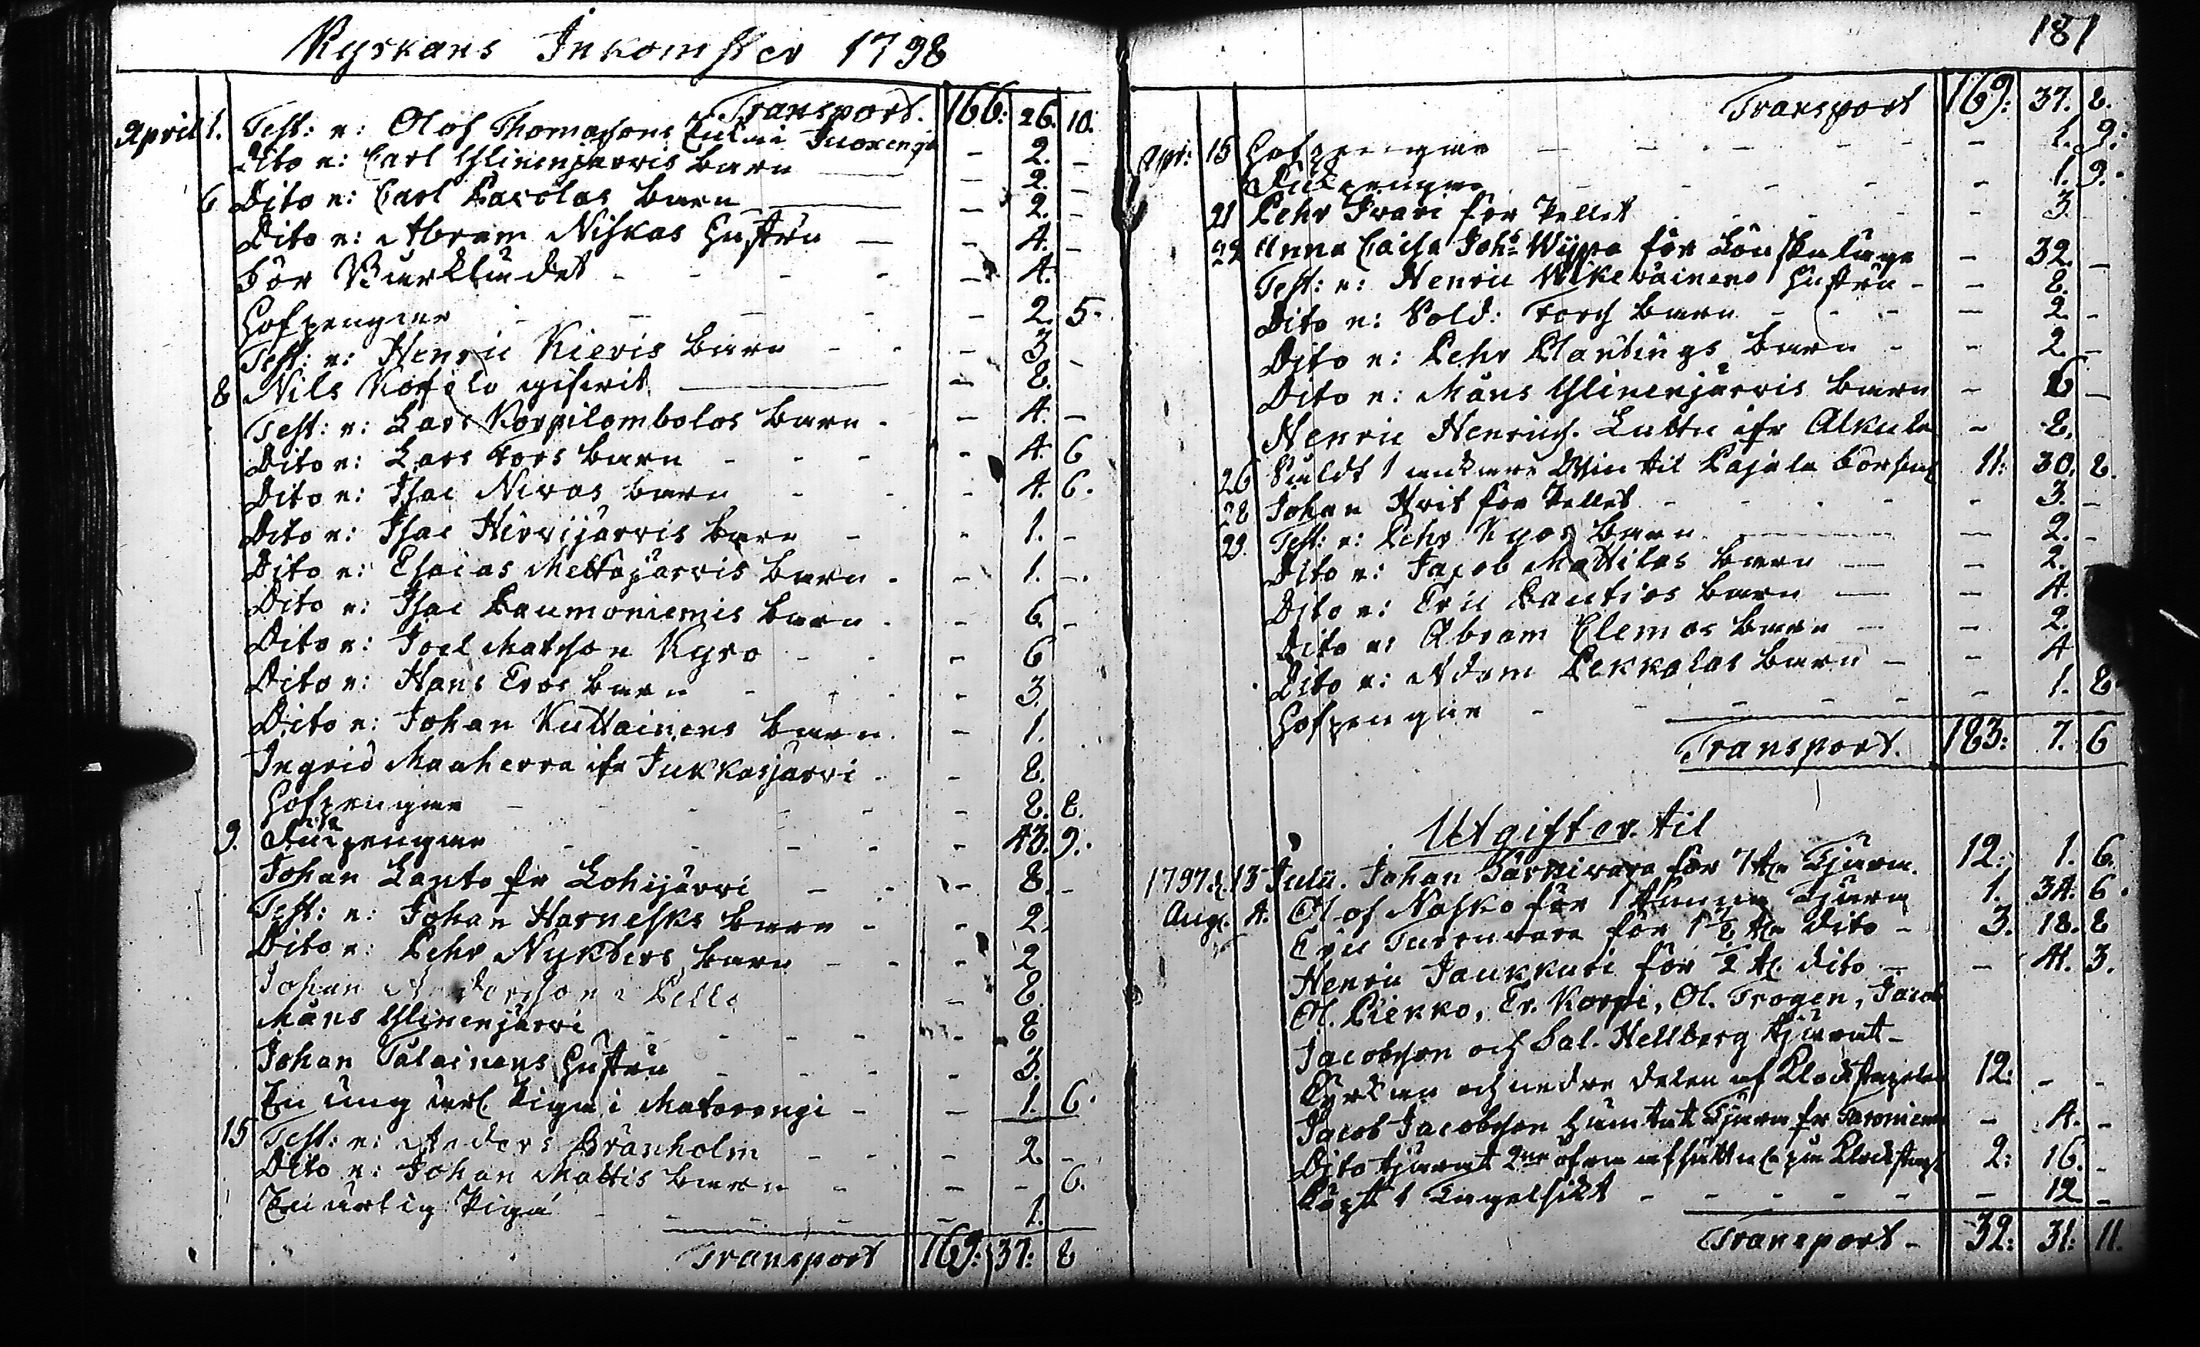 Kyrkans Inkomster 1798
Transport. 166: 26. 10.
April 1. Test: e: Olof Thomassons Enka i Juoxengi - 2. -
Dito e: Carl Ylinenjärvis barn - 2. -
6 Dito e: Carl Lasolas barn - 2. -
Dito e: Abram Niskas Hustru - 4. -
För Bårklädet - 4.
Hofpengar - 2. 5.
Test: e: Henric Kieris barn - 3 -
8 Nils Kofelo gifwit - 8.
Test: e: Lars Korpilombolos barn - 4. -
Dito e: Lars Fors barn - 4. 6
Dito e: Isac Niwas barn - 4. 6.
Dito e: Isac Hirvijärvis barn - 1. -
Dito e: Esaias Meltojärvis barn - 1. -
Dito e: Isac Raumoniemis barn - 6 -
Dito e: Joel Matsson Kyro - 6
Dito e: Hans Eros barn - 3
Dito e: Johan Kuttainens barn - 1.
Ingrid Maaherra ifr Jukkasjärvi - 8.
Hofpengar - 8. 8.
9. pengar - 43. 9.
Johan Lanto fr Lohijärvi - 8. -
Test: e: Johan Harnesks barn - 2.
Dito e: Pehr Nykders barn - 2
Johan Andersson i Pello - 8.
Måns Ylinenjärvi - 8
Johan Palainens Hustru - 3.
En ung ärl. Piga i Matarengi - 1. 6.
15 Test: e: Anders Granholm - 2 -
Dito e: Johan Mattis barn - - 6.
En ärlig Piga - 1.
Transport 169: 37: 8
181
Transport 169: 37. 8.
Apr: 15 Hofpengar - 1. 9.
pengar - 1. 9.
21 Pehr Iwari för Pellet - 3.
22 Anna Caisa Johs Wippa för Lönskaläge - 32. -
Test: e: Henric Wikewainens Hustru - 8.
Dito e: Sold: Forss barn - 2 -
Dito e: Pehr Plantings barn - 2 -
Dito e: Måns Ylinenjärvis barn - 6 -
Henric Henrics. Luttu ifr Alkula - 8.
26 Såldt 1 ankare Win til Pajala församl 11: 30. 8.
28 Johan Krit för Pellet - 3. -
29 Test: e: Pehr Kyrös barn - 2. -
Dito e: Jacob Mattilas barn - 2.
Dito e: Eric Lautios barn - 4.
Dito e: Abram Clemos barn - 2.
Dito e: Adam Pekkalas barn - 4
Hofpengar - 1. 8
Transport. 183: 7. 6
Utgifter til
1797 d. 13 Julii. Johan Särkivara för 7 tr Tjära. 12: 1. 6.
Aug. 4. Olof Nasko för 1 tunna Tjära 1. 34. 6.
Eric Turenvara för 1 1/2 tr dito - 3. 18. 8
Henric Jaukkuri för 2 tr dito - - 41. 3.
Ol. Piekko, Er. Korpi, Ol. Trogen, Jacob
Jacobsson och Sal. Hellberg tjärat
Kyrkan och nedre delen af Klockstapelen 12: - -
Jacob Jacobsson hämtat Tjära fr Taroniemi - 4. -
Dito tjärat 2ne öfra afsättn på Klockstap 2: 16. -
Köpt 1 - 12 -
Transport - 32: 31: 11.